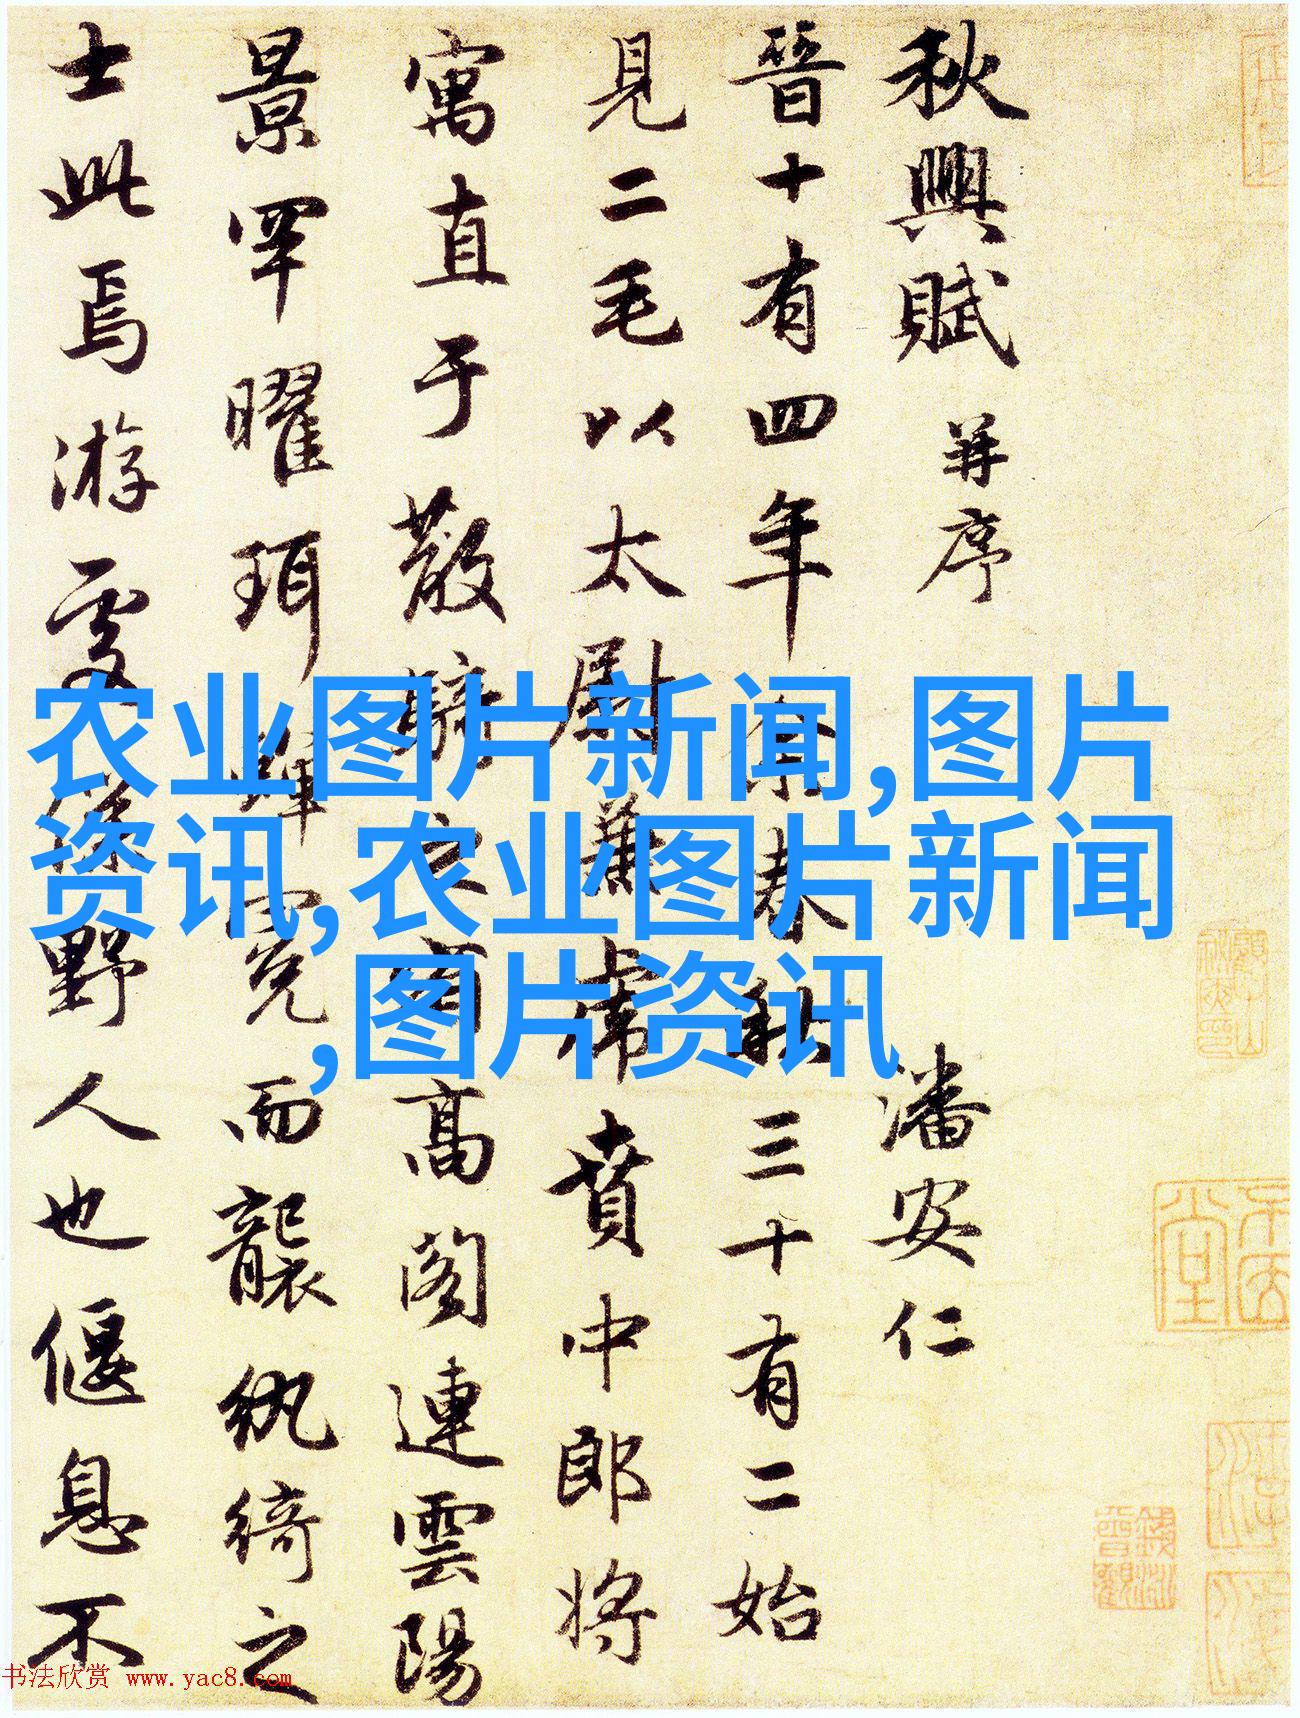 秋興賦 并序 潘安仁
晉十有四年余春秋三十有二始
見二毛以太尉兼虎賁中郎将
寓直于散騎之省高閣連雲陽
景罕曜珥蟬冕而襲紈綺之
士此焉游處僕野人也偃息不
农业图片新闻,图片
资讯,农业图片新闻
,图片资讯
书法欣赏 www.yac8.com